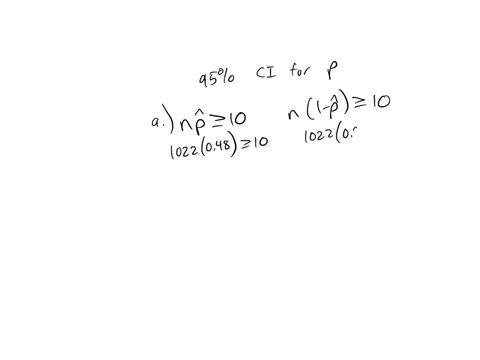 95% CI for p
a.) np̂ ≥ 10 n(1-p̂) ≥ 10
1022(0.48) ≥ 10 1022(0.